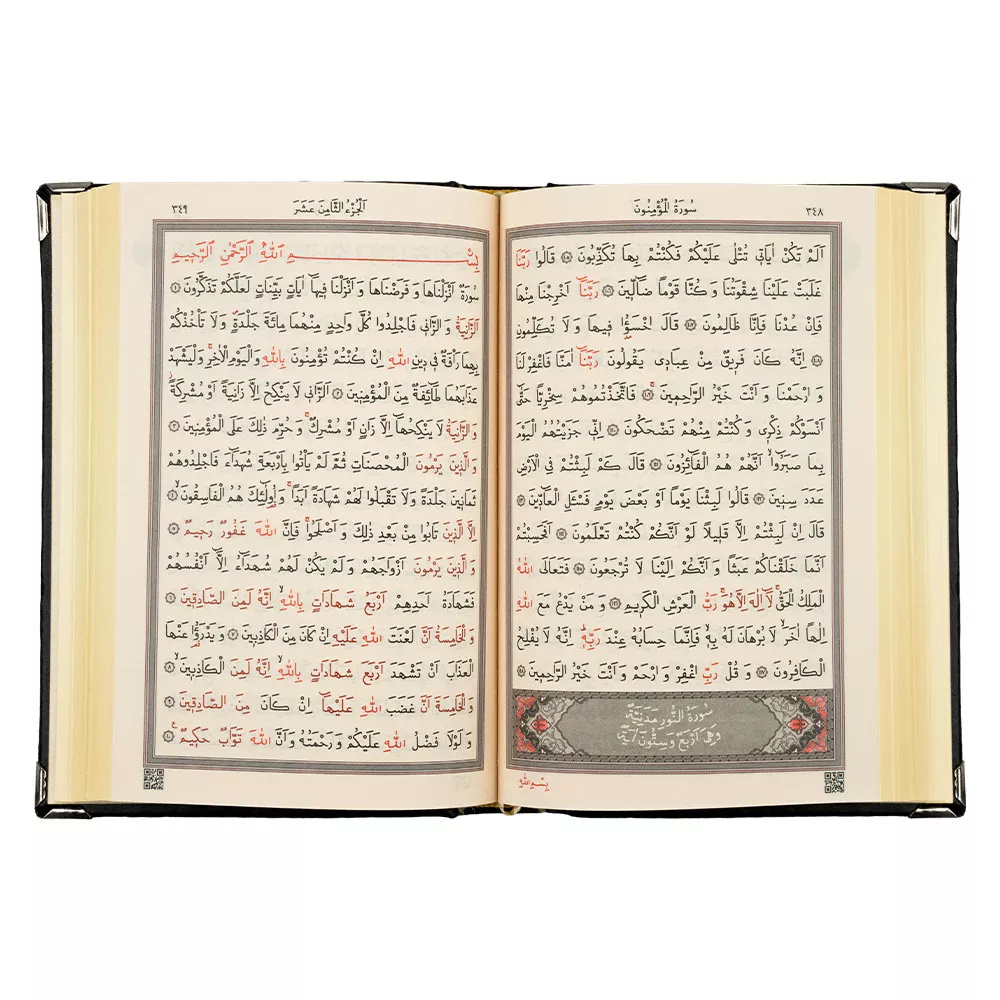 ٣٤٨
سُورَةُ الْمُؤْمِنُونَ
اَلَمْ تَكُنْ اٰيَات۪ي تُتْلٰى عَلَيْكُمْ فَكُنْتُمْ بِهَا تُكَذِّبُونَ ﴿١٠٥﴾ قَالُوا رَبَّنَا
غَلَبَتْ عَلَيْنَا شِقْوَتُنَا وَكُنَّا قَوْمًا ضَٓالّ۪ينَ ﴿١٠٦﴾ رَبَّنَٓا اَخْرِجْنَا مِنْهَا
فَاِنْ عُدْنَا فَاِنَّا ظَالِمُونَ ﴿١٠٧﴾ قَالَ اخْسَؤُ۫ا ف۪يهَا وَلَا تُكَلِّمُونِ
﴿١٠٨﴾ اِنَّهُ كَانَ فَر۪يقٌ مِنْ عِبَاد۪ي يَقُولُونَ رَبَّنَٓا اٰمَنَّا فَاغْفِرْ لَنَا
وَارْحَمْنَا وَاَنْتَ خَيْرُ الرَّاحِم۪ينَ ﴿١٠٩﴾ فَاتَّخَذْتُمُوهُمْ سِخْرِيًّا حَتّٰٓى
اَنْسَوْكُمْ ذِكْر۪ي وَكُنْتُمْ مِنْهُمْ تَضْحَكُونَ ﴿١١٠﴾ اِنّ۪ي جَزَيْتُهُمُ الْيَوْمَ
بِمَا صَبَرُٓوا اَنَّهُمْ هُمُ الْفَٓائِزُونَ ﴿١١١﴾ قَالَ كَمْ لَبِثْتُمْ فِي الْاَرْضِ
عَدَدَ سِن۪ينَ ﴿١١٢﴾ قَالُوا لَبِثْنَا يَوْمًا اَوْ بَعْضَ يَوْمٍ فَسْـَٔلِ الْعَٓادّ۪ينَ ﴿١١٣﴾
قَالَ اِنْ لَبِثْتُمْ اِلَّا قَل۪يلًا لَوْ اَنَّكُمْ كُنْتُمْ تَعْلَمُونَ ﴿١١٤﴾ اَفَحَسِبْتُمْ
اَنَّمَا خَلَقْنَاكُمْ عَبَثًا وَاَنَّكُمْ اِلَيْنَا لَا تُرْجَعُونَ ﴿١١٥﴾ فَتَعَالَى اللّٰهُ
الْمَلِكُ الْحَقُّ لَٓا اِلٰهَ اِلَّا هُوَ رَبُّ الْعَرْشِ الْكَر۪يمِ ﴿١١٦﴾ وَمَنْ يَدْعُ مَعَ اللّٰهِ
اِلٰهًا اٰخَرَ لَا بُرْهَانَ لَهُ بِه۪ فَاِنَّمَا حِسَابُهُ عِنْدَ رَبِّه۪ اِنَّهُ لَا يُفْلِحُ
الْكَافِرُونَ ﴿١١٧﴾ وَقُلْ رَبِّ اغْفِرْ وَارْحَمْ وَاَنْتَ خَيْرُ الرَّاحِم۪ينَ ﴿١١٨﴾
سُورَةُ النُّورِ مَدَنِيَّةٌ
وَهِيَ اَرْبَعٌ وَسِتُّونَ اٰيَةً
بِسْمِ اللّٰهِ
اَلْجُزْءُ الثَّامِنَ عَشَرَ
٣٤٩
بِسْمِ اللّٰهِ الرَّحْمٰنِ الرَّح۪يمِ
سُورَةٌ اَنْزَلْنَاهَا وَفَرَضْنَاهَا وَاَنْزَلْنَا ف۪يهَٓا اٰيَاتٍ بَيِّنَاتٍ لَعَلَّكُمْ تَذَكَّرُونَ ﴿١﴾
اَلزَّانِيَةُ وَالزَّان۪ي فَاجْلِدُوا كُلَّ وَاحِدٍ مِنْهُمَا مِائَةَ جَلْدَةٍ وَلَا تَأْخُذْكُمْ
بِهِمَا رَأْفَةٌ ف۪ي د۪ينِ اللّٰهِ اِنْ كُنْتُمْ تُؤْمِنُونَ بِاللّٰهِ وَالْيَوْمِ الْاٰخِرِ وَلْيَشْهَدْ
عَذَابَهُمَا طَٓائِفَةٌ مِنَ الْمُؤْمِن۪ينَ ﴿٢﴾ اَلزَّان۪ي لَا يَنْكِحُ اِلَّا زَانِيَةً اَوْ مُشْرِكَةً
وَالزَّانِيَةُ لَا يَنْكِحُهَٓا اِلَّا زَانٍ اَوْ مُشْرِكٌ وَحُرِّمَ ذٰلِكَ عَلَى الْمُؤْمِن۪ينَ ﴿٣﴾
وَالَّذ۪ينَ يَرْمُونَ الْمُحْصَنَاتِ ثُمَّ لَمْ يَأْتُوا بِاَرْبَعَةِ شُهَدَٓاءَ فَاجْلِدُوهُمْ
ثَمَان۪ينَ جَلْدَةً وَلَا تَقْبَلُوا لَهُمْ شَهَادَةً اَبَدًا وَاُو۬لٰٓئِكَ هُمُ الْفَاسِقُونَ ﴿٤﴾
اِلَّا الَّذ۪ينَ تَابُوا مِنْ بَعْدِ ذٰلِكَ وَاَصْلَحُوا فَاِنَّ اللّٰهَ غَفُورٌ رَح۪يمٌ ﴿٥﴾
وَالَّذ۪ينَ يَرْمُونَ اَزْوَاجَهُمْ وَلَمْ يَكُنْ لَهُمْ شُهَدَٓاءُ اِلَّٓا اَنْفُسُهُمْ
فَشَهَادَةُ اَحَدِهِمْ اَرْبَعُ شَهَادَاتٍ بِاللّٰهِ اِنَّهُ لَمِنَ الصَّادِق۪ينَ ﴿٦﴾
وَالْخَامِسَةُ اَنَّ لَعْنَتَ اللّٰهِ عَلَيْهِ اِنْ كَانَ مِنَ الْكَاذِب۪ينَ ﴿٧﴾ وَيَدْرَؤُ۬ا عَنْهَا
الْعَذَابَ اَنْ تَشْهَدَ اَرْبَعَ شَهَادَاتٍ بِاللّٰهِ اِنَّهُ لَمِنَ الْكَاذِب۪ينَ ﴿٨﴾
وَالْخَامِسَةَ اَنَّ غَضَبَ اللّٰهِ عَلَيْهَٓا اِنْ كَانَ مِنَ الصَّادِق۪ينَ ﴿٩﴾
وَلَوْلَا فَضْلُ اللّٰهِ عَلَيْكُمْ وَرَحْمَتُهُ وَاَنَّ اللّٰهَ تَوَّابٌ حَك۪يمٌ ﴿١٠﴾